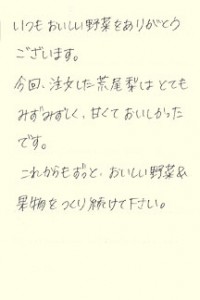 いつもおいしい野菜をありがとう
ございます。
今回、注文した荒尾梨はとても
みずみずしく、甘くておいしかった
です。
これからもずっと、おいしい野菜&
果物をつくり続けて下さい。